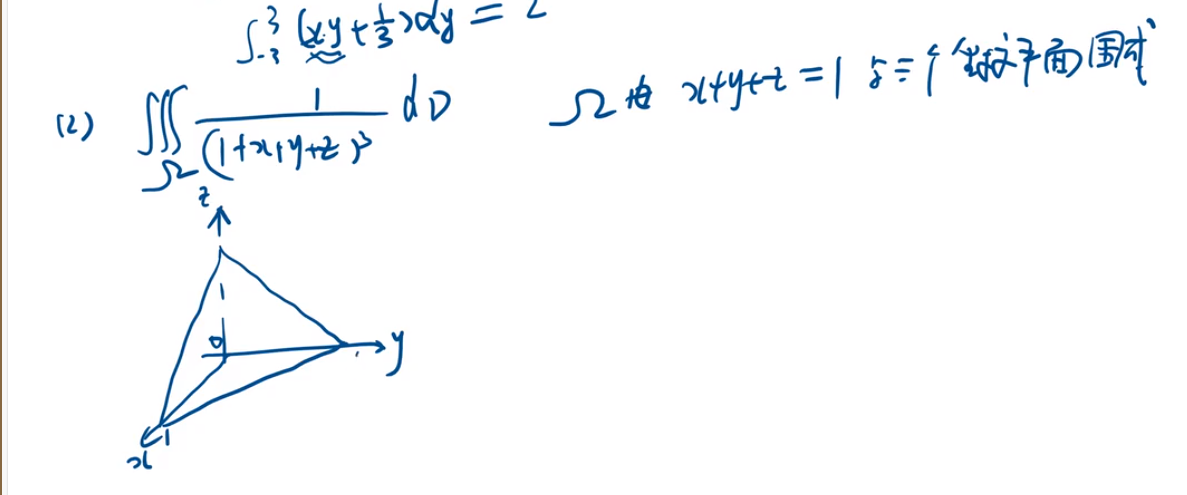 ∫₋₃³ (xy + 1/3) dy = 2
(2) ∭_Ω 1/(1+x+y+z)³ dv Ω由 x+y+z=1 与三个坐标平面围成
z
1
0
y
1
1
x